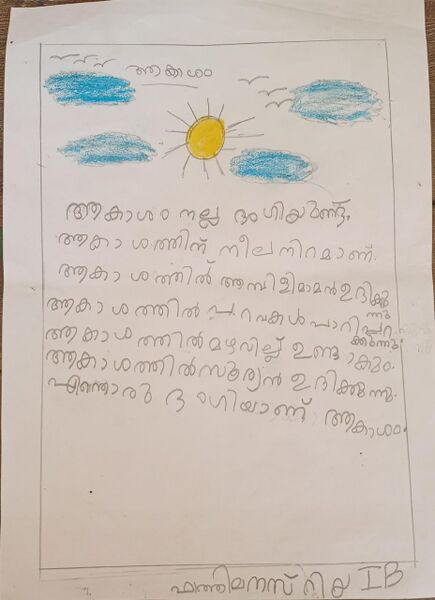 ആകാശം
ആകാശം നല്ല ഭംഗിയുണ്ട്.
ആകാശത്തിന് നീലനിറമാണ്.
ആകാശത്തിൽ അമ്പിളിമാമൻ ഉദിക്കുന്നു
ആകാശത്തിൽ പറവകൾ പാറിപ്പറക്കുന്നു.
ആകാശത്തിൽ മഴവില്ല് ഉണ്ടാകും.
ആകാശത്തിൽ സൂര്യൻ ഉദിക്കുന്നു.
എന്തൊരു ഭംഗിയാണ് ആകാശം.
I B